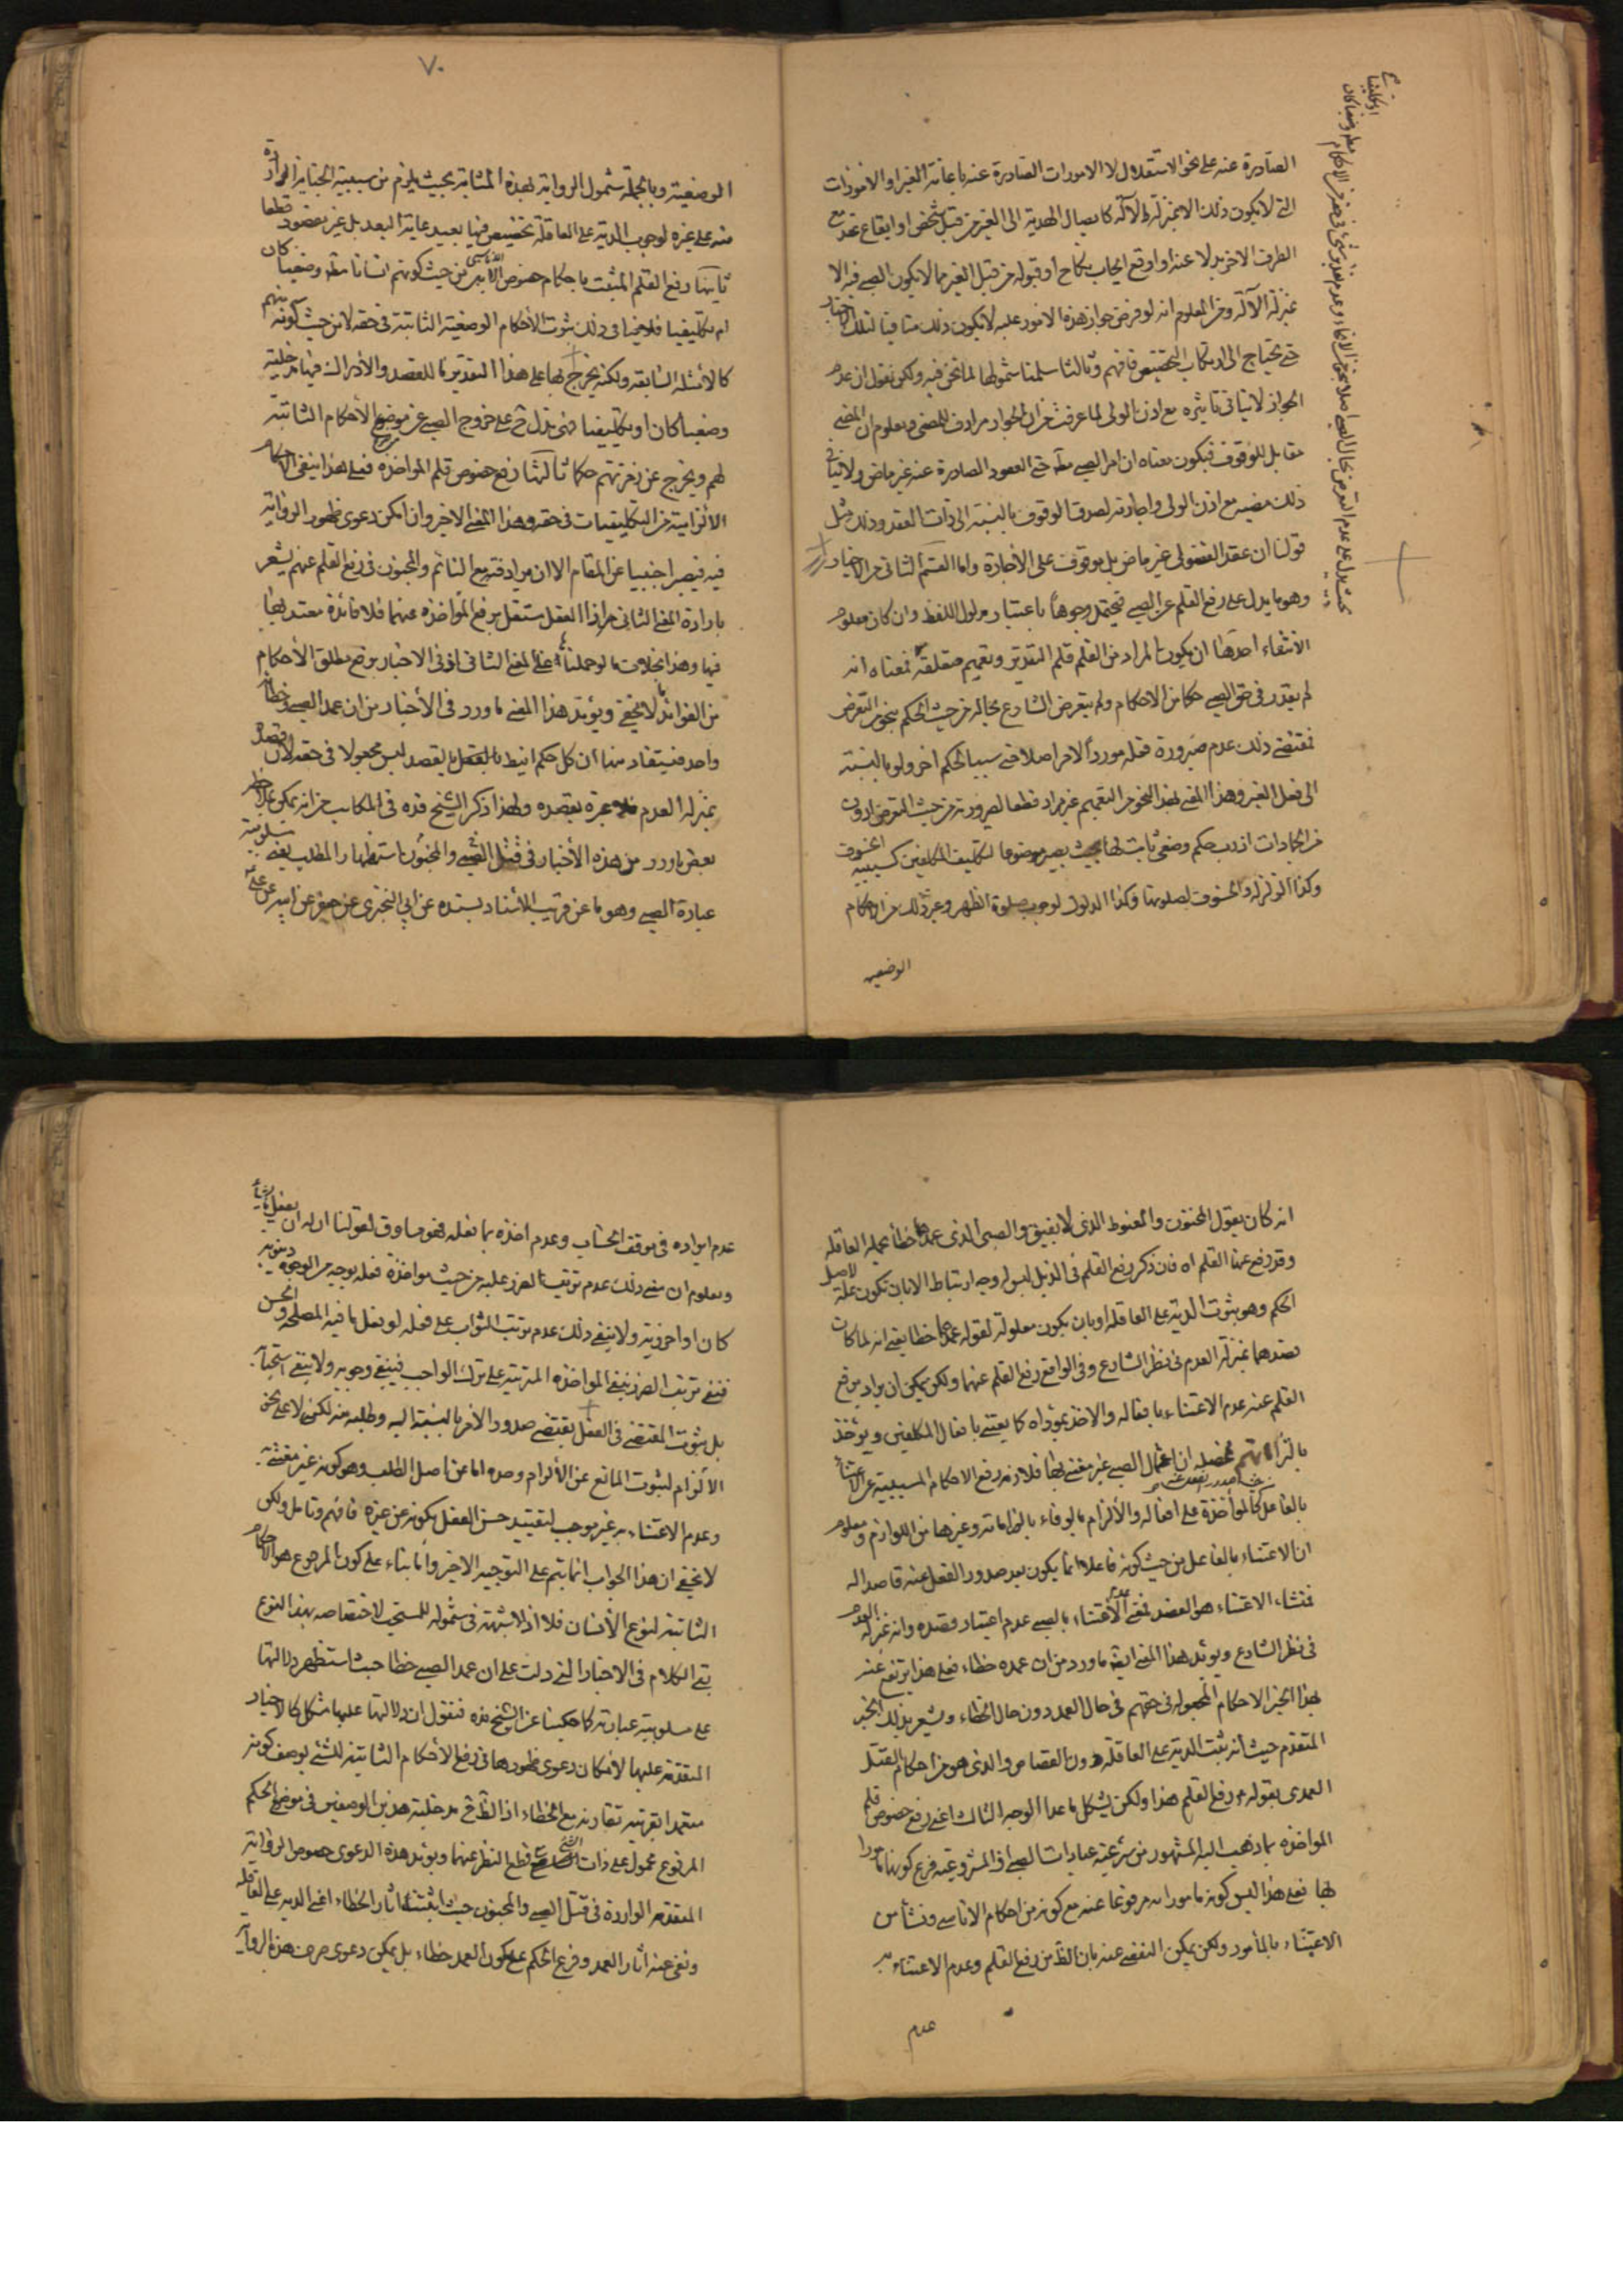 الصادرة عنه على نحو الاستقلال لا الامورات الصادرة عنه باعانة الغير او الامورات
التي لا يكون ذلك الا بمنزلة الآلة كايصال الهدية الى الغير من قبل شخص او ايقاع عقد مع
الطرف الاخر بدلا عنه او اوقع ايجاب نكاح او قبوله من قبل الغير مما لا يكون الصبي فيه الا
بمنزلة الآلة ومن المعلوم انه لو فرض جواز هذه الامور عليه لا يكون ذلك منافيا لتلك الاخبار
حتى يحتاج الى ارتكاب التخصيص فافهم وثالثا سلمنا شمولها لما نحن فيه ولكن نقول ان عدم
الجواز لا ينافي تاثيره مع اذن الولي لما عرفت من ان الجواز مرادف للمضي ومعلوم ان المضي
مقابل للوقوف فيكون معناه ان امر الصبي مطلقا حتى العقود الصادرة عنه غير ماض ولا ينافي
ذلك مضيه مع اذن الولي واجازته لصدق الوقوف بالنسبة الى ذات العقد وذلك مثل
قولنا ان عقد الفضولي غير ماض بل موقوف على الاجازة واما القسم الثاني من الاخبار
وهو ما يدل على رفع القلم عن الصبي فيحتمل وجوها باعتبار مدلول اللفظ وان كان معلوم
الانتفاء احدها ان يكون المراد من القلم قلم التقدير وتعميم متعلقه فمعناه انه
لم يقدر في حق الصبي حكم من الاحكام ولم يتعرض الشارع بحاله من حيث الحكم بنحو من التعرض
فمقتضى ذلك عدم صيرورة فعله موردا لامر اصلا حتى سببا لحكم اخر ولو بالنسبة
الى فعل الغير وهذا المعنى بهذا النحو من التعميم غير مراد قطعا لصيرورته من حيث المتعرض ادون
من الجمادات اذ رب حكم وضعي ثابت لها بحيث يصير موضوعا لتكليف المكلفين كسببية الخسوف
وكذا الزلزلة والخسوف لصلوتها وكذا الدلوك لوجوب صلوة الظهر وغير ذلك من الاحكام
الوضعيه
٧٠
الوضعية وبالجملة شمول الرواية لهذه المثابة بحيث يلزم من سببية الجناية الواردة
منه على غيره لوجوب الدية على العاقلة تخصيص فيها بعيد غاية البعد بل غير مقصود قطعا
ثانيها رفع القلم المثبت باحكام خصوص الاناسي من حيث كونهم انسانا مطلقا وضعيا كان
ام تكليفيا فلا ينافي ذلك ثبوت الأحكام الوضعية الثابتة في حقه لا من حيث كونه منهم
كالأمثلة السابقة ولكنه يخرج بها على هذا التقدير ما للقصد والأدراك فيها مدخلية
وضعيا كان او تكليفيا فهي تدل ح على خروج الصبي عن موضوع الأحكام الثابتة
لهم ويخرج عن زمرتهم حكما ثالثها رفع خصوص قلم المواخذه فعلى هذا ينفي الاحكام
الألزامية من التكليفيات في حقه وهذا المعنى الاخير وان امكن دعوى ظهور الرواية
فيه فيصير اجنبيا عن المقام الا ان مرادفته مع النائم والمجنون في رفع القلم عنهم يشعر
بارادة المعنى الثاني من اذا العقل مستقل برفع المواخذه عنهما فلا فائدة معتد بها
فيها وهذا بخلاف ما لو حملناه على المعنى الثاني اذ في الاخبار برفع مطلق الأحكام
من الفوائد ما لا يخفى ويؤيد هذا المعنى ما ورد في الأخبار من ان عمد الصبي وخطاه
واحد فيستفاد منها أن كل حكم انيط بالقصد ليس مجعولا في حقه لان قصده
بمنزلة العدم فلا عبرة بقصده ولهذا ذكر الشيخ قده في المكاسب من انه يمكن بملاحظة
بعض ما ورد من هذه الأخبار في قتل الصبي والمجنون استظهار المطلب يعني مسلوبية
عبارة الصبي وهو ما عن قرب الأسناد بسنده عن ابي البختري عن جعفر عن ابيه عن علي
انه كان يقول المجنون والمعتوه الذي لا يفيق والصبي الذي عمدهما خطأ تحمله العاقلة
وقد رفع عنهما القلم اه فان ذكر رفع القلم في الذيل ليس له وجه ارتباط الا بان تكون علة لاصل
الحكم وهو ثبوت الدية على العاقلة او بان يكون معلولة لقوله عمدهما خطا يعني انه لما كان
قصدهما بمنزلة العدم في نظر الشارع وفي الواقع رفع القلم عنهما ولكن يمكن ان يراد برفع
القلم عنه عدم الاعتناء بافعاله والاخذ بمؤداه كما يعتنى بافعال المكلفين ويؤخذ
بالتزاماتهم فمحصله ان افعال الصبي غير معتنى بها فلازمه رفع الاحكام المسببية عن الاعتناء
بالفاعل كالمواخذة على افعاله والألزام بالوفاء بالتزاماته وغيرها من اللوازم ومعلوم
ان الاعتناء بالفاعل من حيث كونه فاعلا انما يكون بعد صدور الفعل عنه قاصدا له
فمنشاء الاعتناء هو القصد فمعنى عدم الاعتناء بالصبي عدم اعتبار قصده وانه بمنزلة العدم
في نظر الشارع ويؤيد هذا المعنى ايضا ما ورد من ان عمده خطاء فعلى هذا يرتفع عنه
بهذا الخبر الاحكام المجعولة في حقهم في حال العمد دون حال الخطاء ويشعر بذلك الخبر
المتقدم حيث انه يثبت الدية على العاقلة دون القصاص والذي هو من احكام القتل
العمدي بقوله ع رفع القلم هذا ولكن يشكل ما عدا الوجه الثالث اعني رفع خصوص قلم
المواخذه بما ذهب اليه المشهور من شرعية عبادات الصبي اذ المشروعية فرع كونها مامورا
بها فعلى هذا ليس كونه مامورا به مرفوعا عنه مع كونه من احكام الاناسي ونشأ من
الاعتناء بالمأمور ولكن يمكن التفصي عنه بان الظ من رفع القلم وعدم الاعتناء به
عدم
عدم ايراده في موقف الحساب وعدم اخذه بما يفعله فهو مساوق لقولنا ان له ان يفعل ما يشاء
ومعلوم ان معنى ذلك عدم ترتب الضرر عليه من حيث مواخذة فعله بوجه من الوجوه دنيوية
كان او اخروية ولا ينفي ذلك عدم ترتب الثواب على فعله لو يفعل ما فيه المصلحة والحسن
فنفي ترتب الضرر ينفي المواخذه المترتبة على ترك الواجب فينفي وجوبه ولا ينفي استحبابه
بل ثبوت المقتضي في الفعل يقتضي صدور الأمر بالنسبة اليه وطلبه منه لكن لا على نحو
الألزام لثبوت المانع عن الألزام وحده اما عن اصل الطلب وهو كونه غير معتنى
وعدم الاعتناء به غير موجب لتقييد حسن الفعل بكونه عن غيره فافهم وتامل ولكن
لا يخفى ان هذا الجواب انما يتم على التوجيه الاخير واما بناء على كون المرفوع هو الاحكام
الثابتة لنوع الأنسان فلا اذ لا شبهة في شموله للمستحب لاختصاصه بهذا النوع
بقي الكلام في الاخبار التي دلت على ان عمد الصبي خطا حيث استظهر دلالتها
على مسلوبية عبارته كما حكينا عن الشيخ قده فنقول ان دلالتها عليها مشكل كالاخبار
المتقدمة عليها لأمكان دعوى ظهورها في رفع الأحكام الثابتة للشئ بوصف كونه
متعمدا بقرينة تقارنه مع الخطاء اذ الظ ح مدخلية هذين الوصفين في موضوع الحكم
المرفوع محمول على ذات الشئ مع قطع النظر عنهما ويؤيد هذه الدعوى خصوص الرواية
المتقدمة الواردة في قتل الصبي والمجنون حيث اثبتت اثار الخطاء اعني الدية على العاقلة
ونفي عنه اثار العمد وفرع الحكم على كون العمد خطاء بل يمكن دعوى صرف هذه الرواية